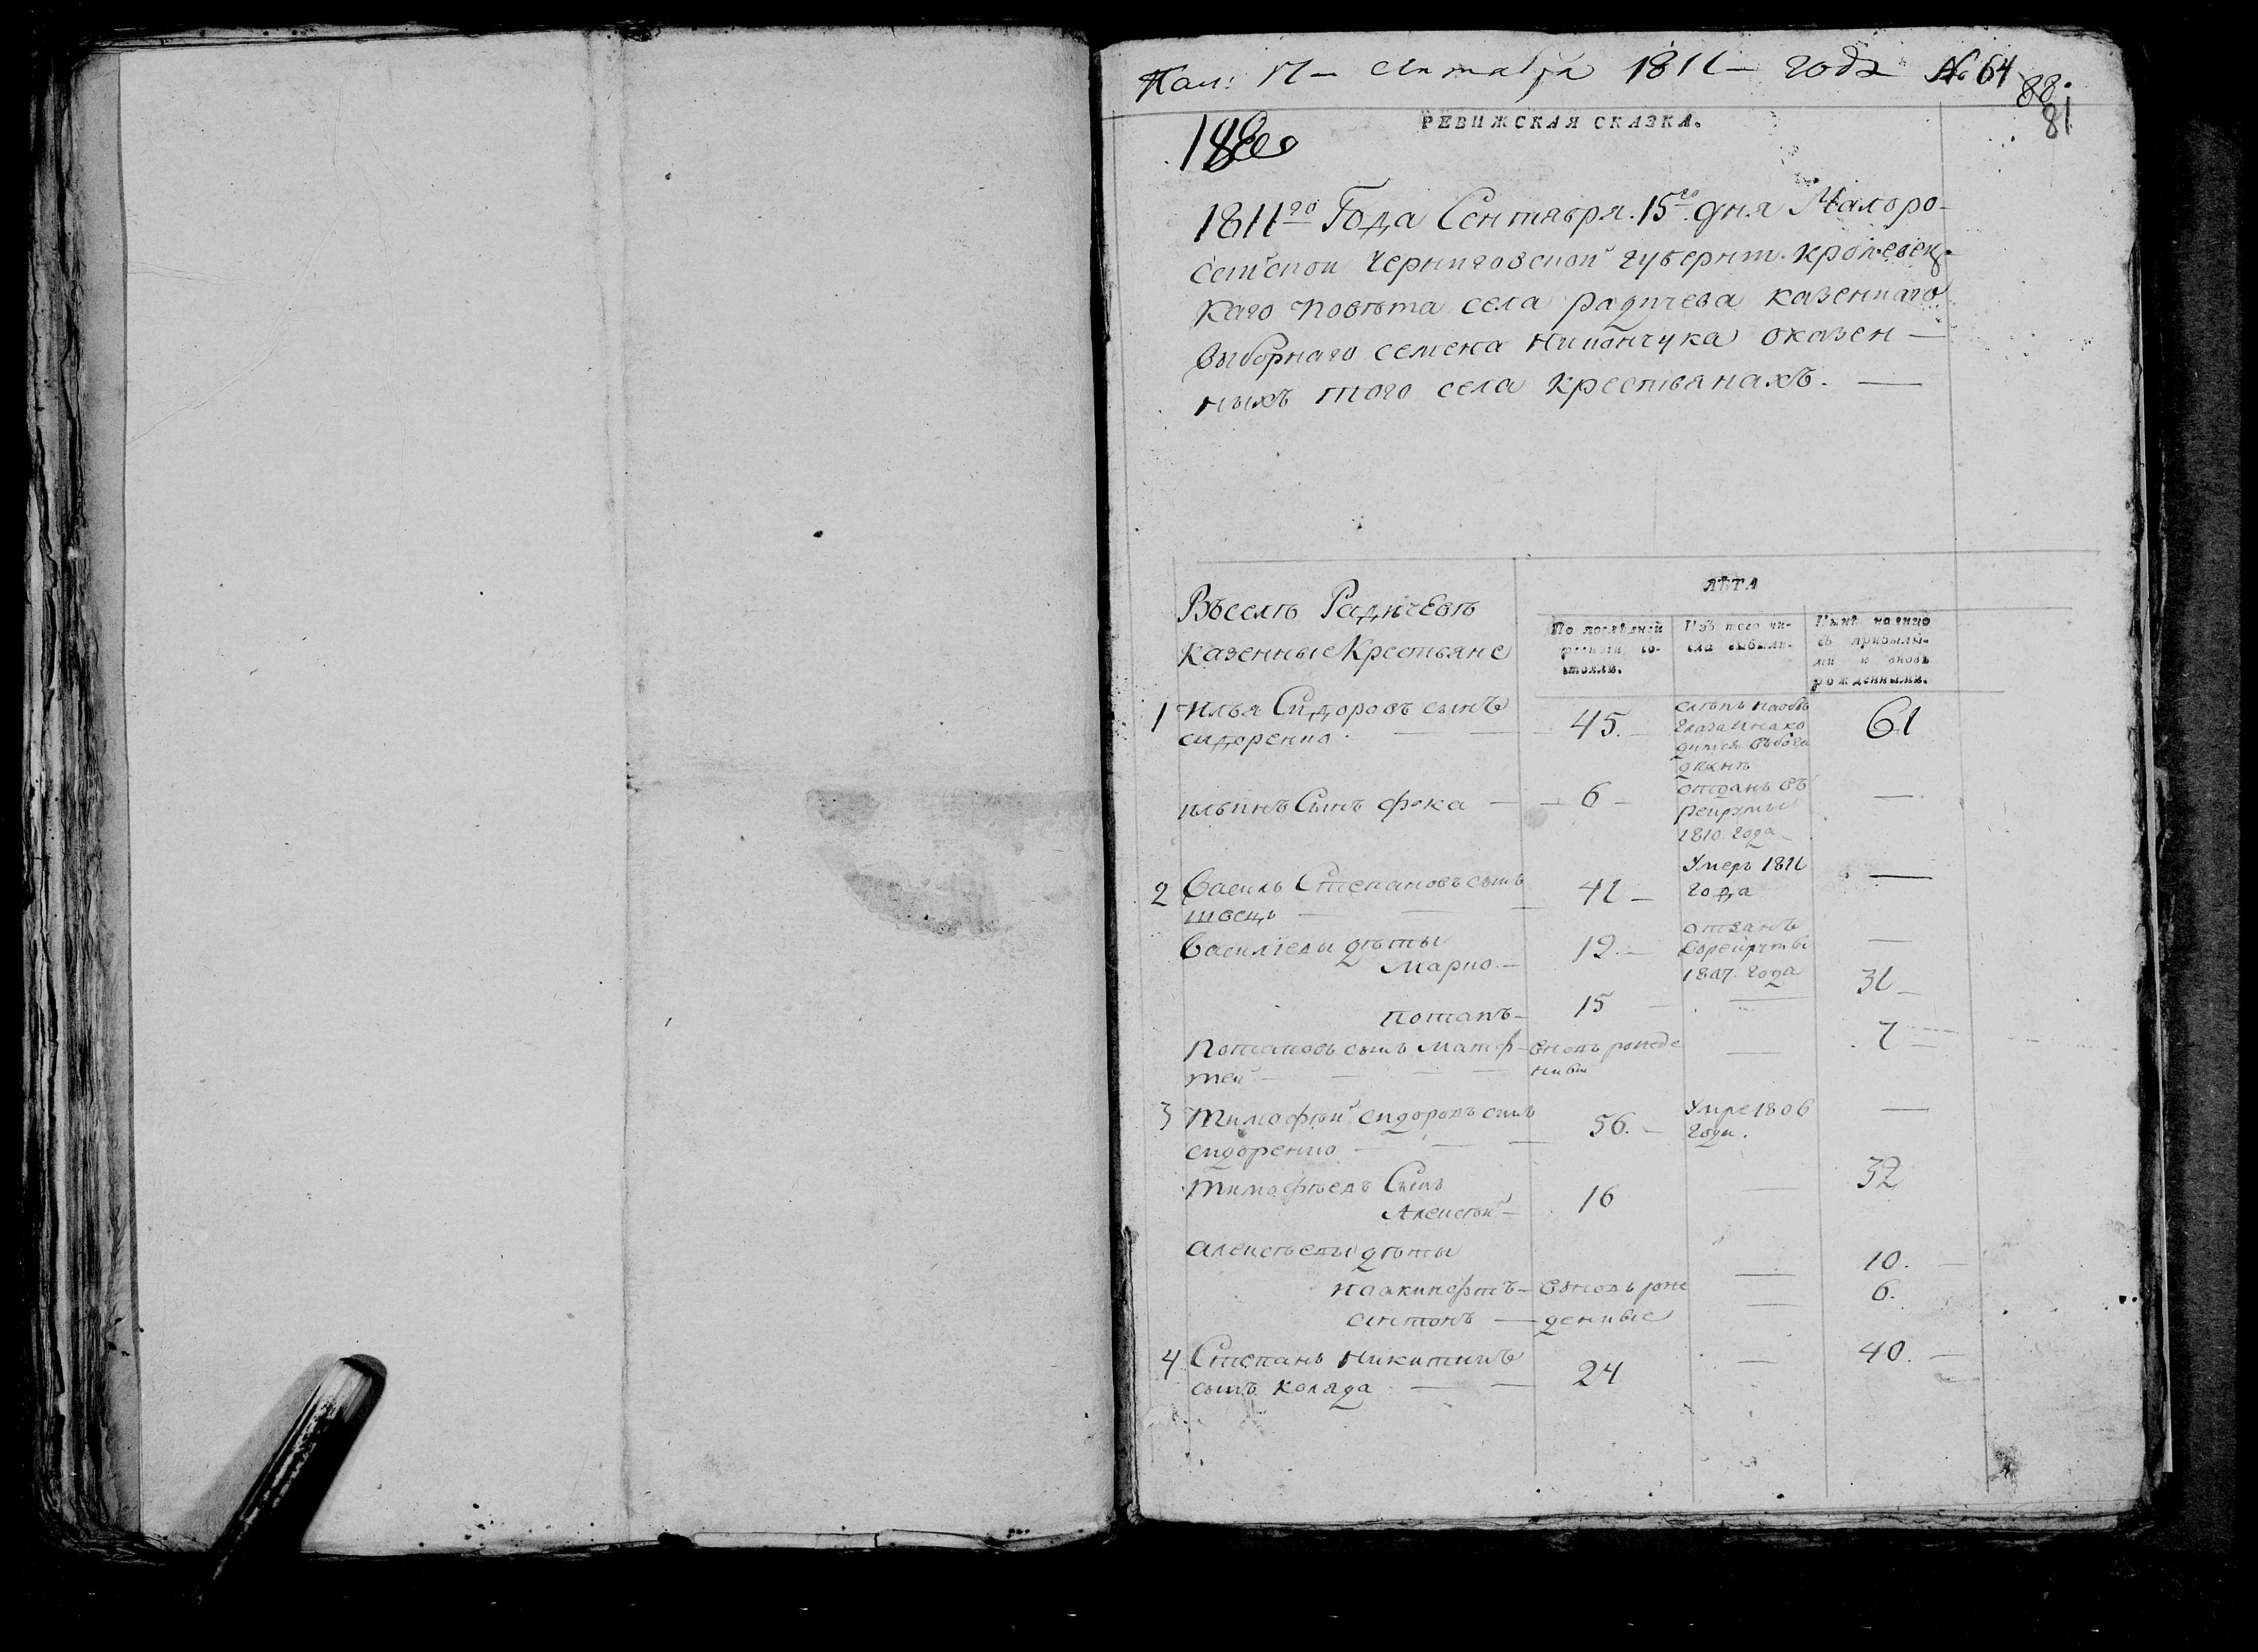 1811 года № 64
88.
81
РЕВИЖСКАЯ СКАЗКА.
1811го Года Сентября. 15го дня Малоро-
сейской Черниговской губерніи. Кролевец-
каго повѣта села радичева казеннаго
выборнаго семена оказен-
ныхъ того села крестьянахъ.
ЛѢТА
Въселѣ Радичевѣ
казенные Крестьяне
По послѣдней ревизіи состояло.
Изъ того числа выбыли.
Нынѣ налицо съ прибылыми и вновь рожденными.
1 Илья Сидоровъ сынъ
сидоренко 45. 61
слѣпъ наобѣ
глаза инахо
дится въбога
дѣлнѣ
ильинъ Сынъ фока 6
отданъ въ
рекруты
1810. года
2 Василь Степановъ сынъ
швецъ 41
Умеръ 1811
года
Василіевы дѣты
Марко 19.
отданъ
врекруты
1807. года
потапъ 15 31
Потаповъ сынъ Матф
тей вновь рожде
нный 7
3 Тимофѣй сидоровъ сынъ
сидоренко 56.
Умре 1806
года.
Тимофѣевъ Сынъ
Алексѣй 16 32
алексѣевы дѣты
иоакинфтъ вновь рож 10.
антонъ денные 6.
4 Степанъ Никитинъ
сынъ коляда 24 40.